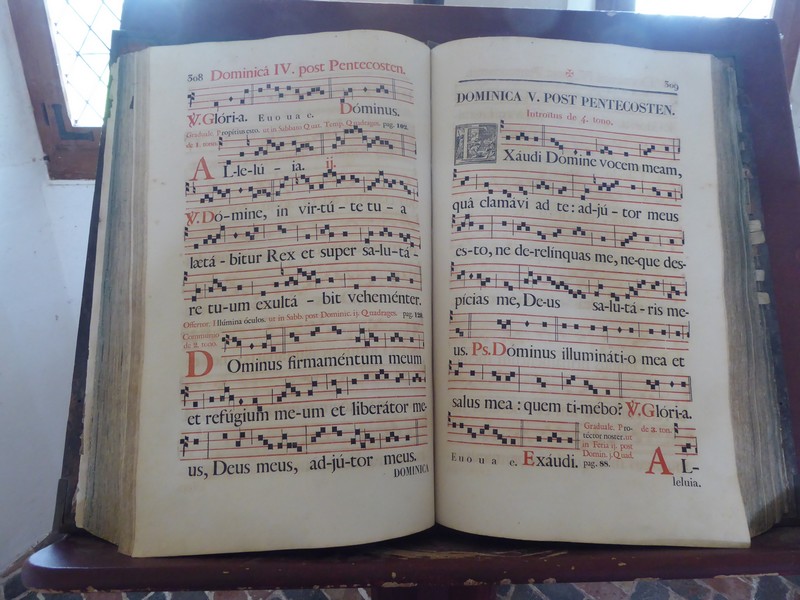 308 Dominica IV. post Pentecosten.
℣. Glóri-a. Euouae. Dóminus.
Graduale. Propitius esto. ut in Sabbato Quat. Temp. Quadrages. pag. 102.
de 1. tono.
AL-le-lú - ia. ij.
℣. Dó-mine, in vir-tú-te tu - a
lætá-bitur Rex et super sa-lu-tá-
re tu-um exultá - bit veheménter.
Offertor. Illúmina óculos. ut in Sabb. post Dominic. ij. Quadrages. pag. 120.
Communio
de 2. tono.
DOminus firmaméntum meum
et refúgium me-um et liberátor me-
us, Deus meus, ad-jú-tor meus.
DOMINICA
309
DOMINICA V. POST PENTECOSTEN.
Introitus de 4. tono.
EXáudi Dómine vocem meam,
quâ clamávi ad te: ad-jú-tor meus
es-to, ne de-relínquas me, ne-que des-
pícias me, De-us sa-lu-tá-ris me-
us. Ps. Dóminus illumináti-o mea et
salus mea : quem ti-mébo? ℣. Glóri-a.
Euouae. Exáudi.
Graduale. Pro-
téctor noster. ut
in Feria ij. post
Domin. j. Quad.
pag. 88.
de 2. tono.
AL-
leluia.